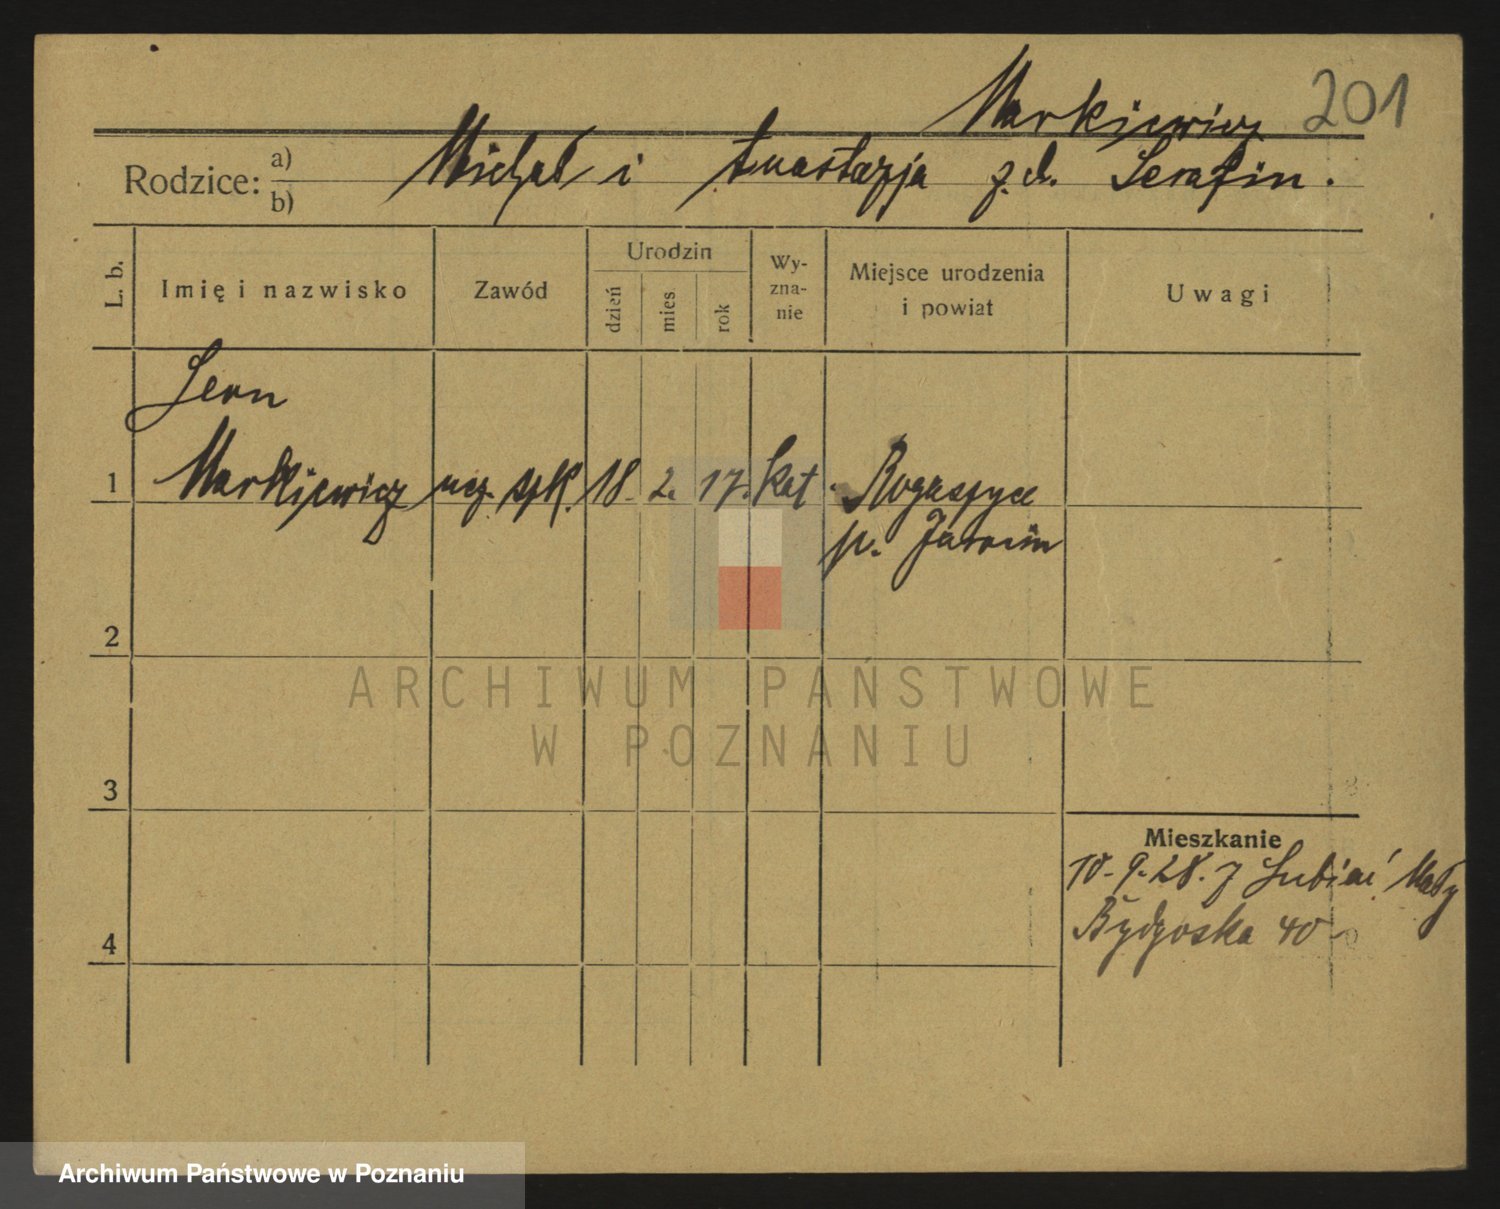 Markiewicz 201
Rodzice: a) b) Michał i Anastazja z.d. Serafin.
L. b.
Imię i nazwisko
Zawód
Urodzin
dzień
mies
rok
Wy-
zna-
nie
Miejsce urodzenia
i powiat
Uwagi
Leon
1 Markiewicz ucz. szk. 18. 2. 17. kat. Rogaszyce
p. Jarocin
2
3
4
ARCHIWUM PAŃSTWOWE
W POZNANIU
Mieszkanie
10.9.28. z Lubiń Mały
Bydgoska 40
Archiwum Państwowe w Poznaniu